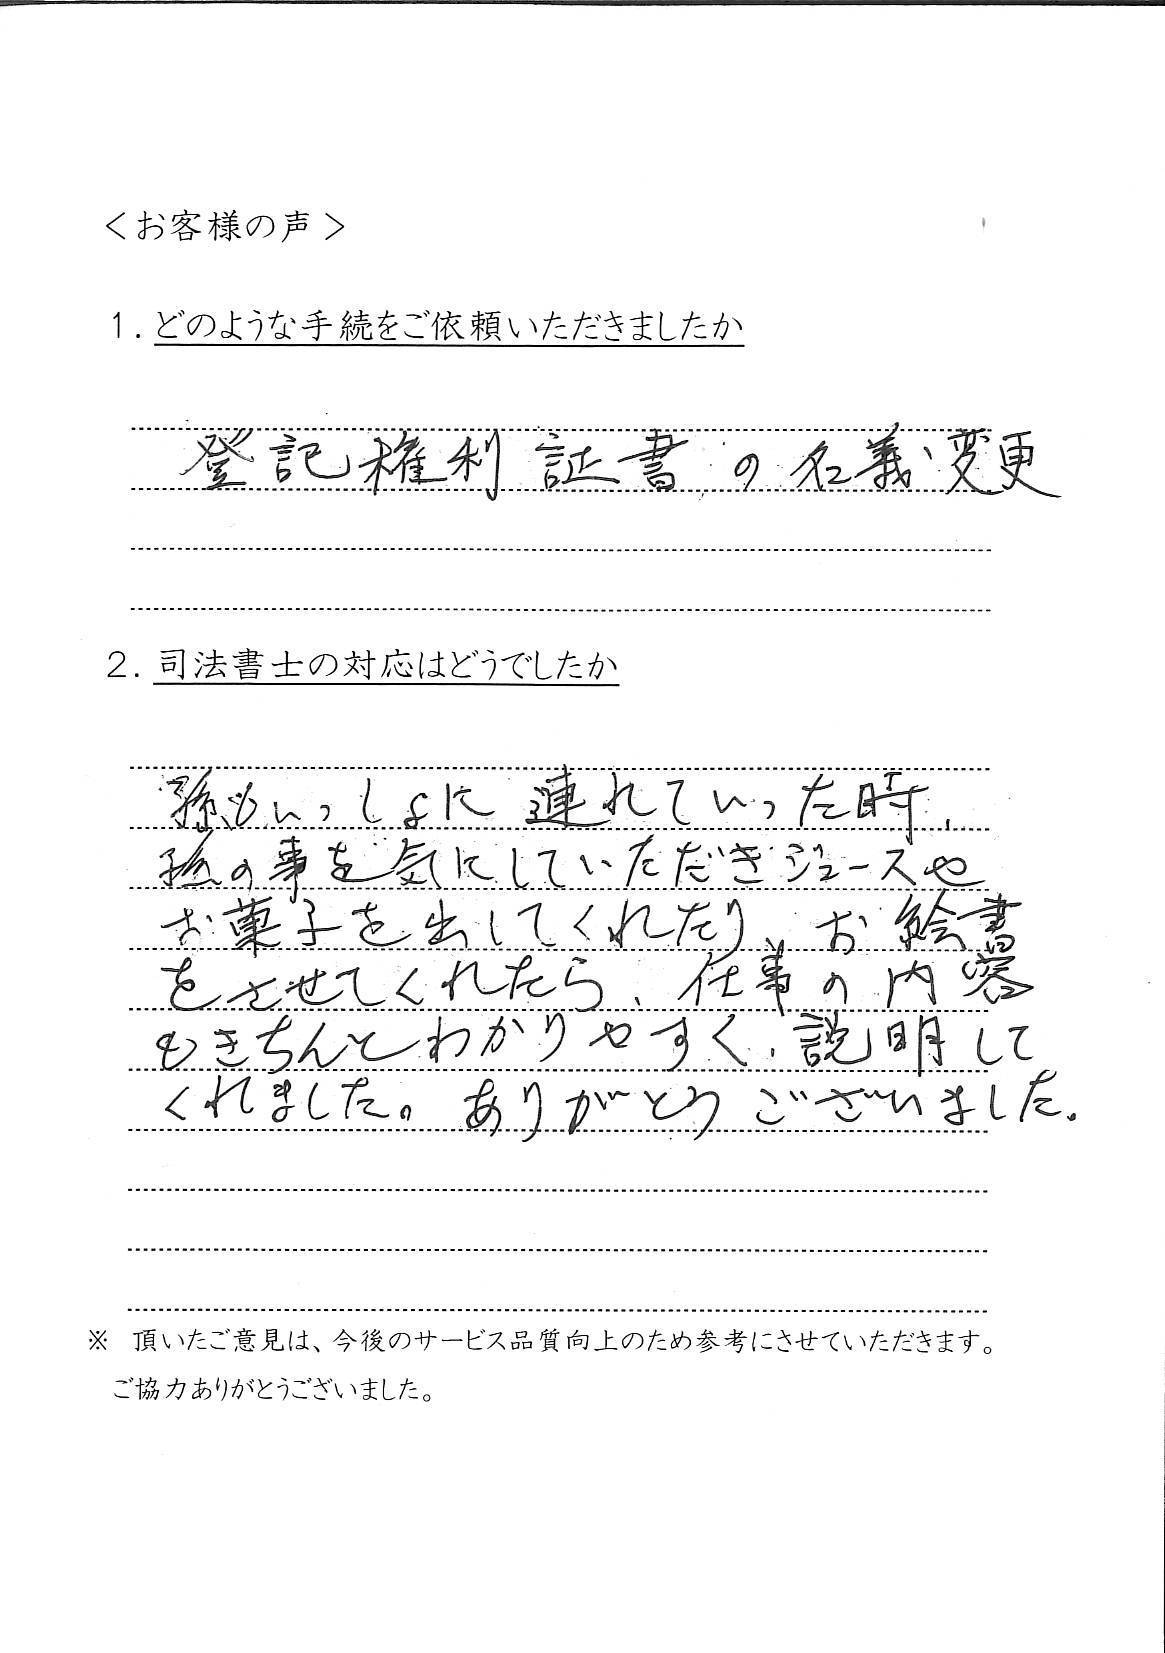 ＜お客様の声＞
1. どのような手続をご依頼いただきましたか
登記権利証書の名義変更
2. 司法書士の対応はどうでしたか
孫もいっしょに連れていった時、
孫の事を気にしていただきジュースや
お菓子を出してくれたり、お絵書
をさせてくれたら、仕事の内容
もきちんとわかりやすく、説明して
くれました。ありがとうございました。
※ 頂いたご意見は、今後のサービス品質向上のため参考にさせていただきます。
ご協力ありがとうございました。